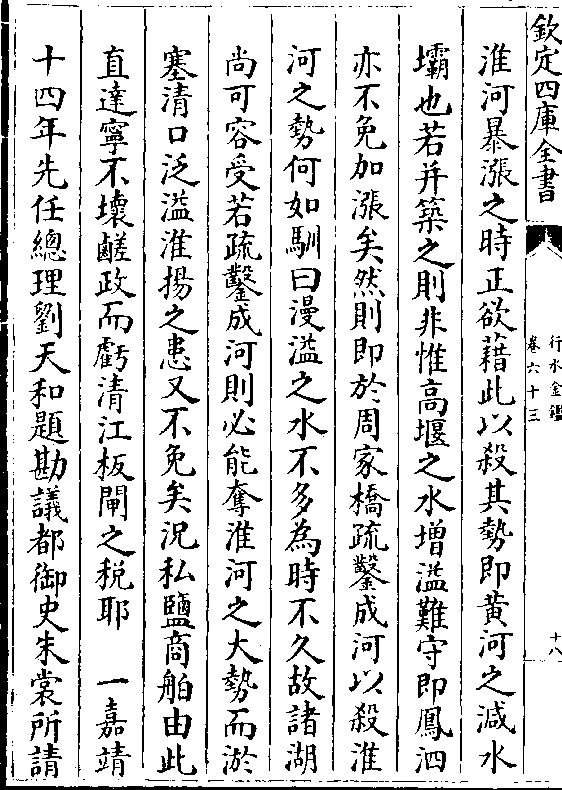 欽定四庫全書
行水金鑑
卷六十三
十八
淮河暴漲之時正欲藉此以殺其勢即黄河之減水
壩也若并築之則非惟高堰之水增溢難守即鳳泗
亦不免加漲矣然則即於周家橋疏鑿成河以殺淮
河之勢何如馴曰漫溢之水不多為時不久故諸湖
尚可容受若疏鑿成河則必能奪淮河之大勢而淤
塞清口泛溢淮揚之患又不免矣況私鹽商舶由此
直達寧不壞鹺政而虧清江板閘之税耶　一嘉靖
十四年先任總理劉天和題勘議都御史朱裳所請